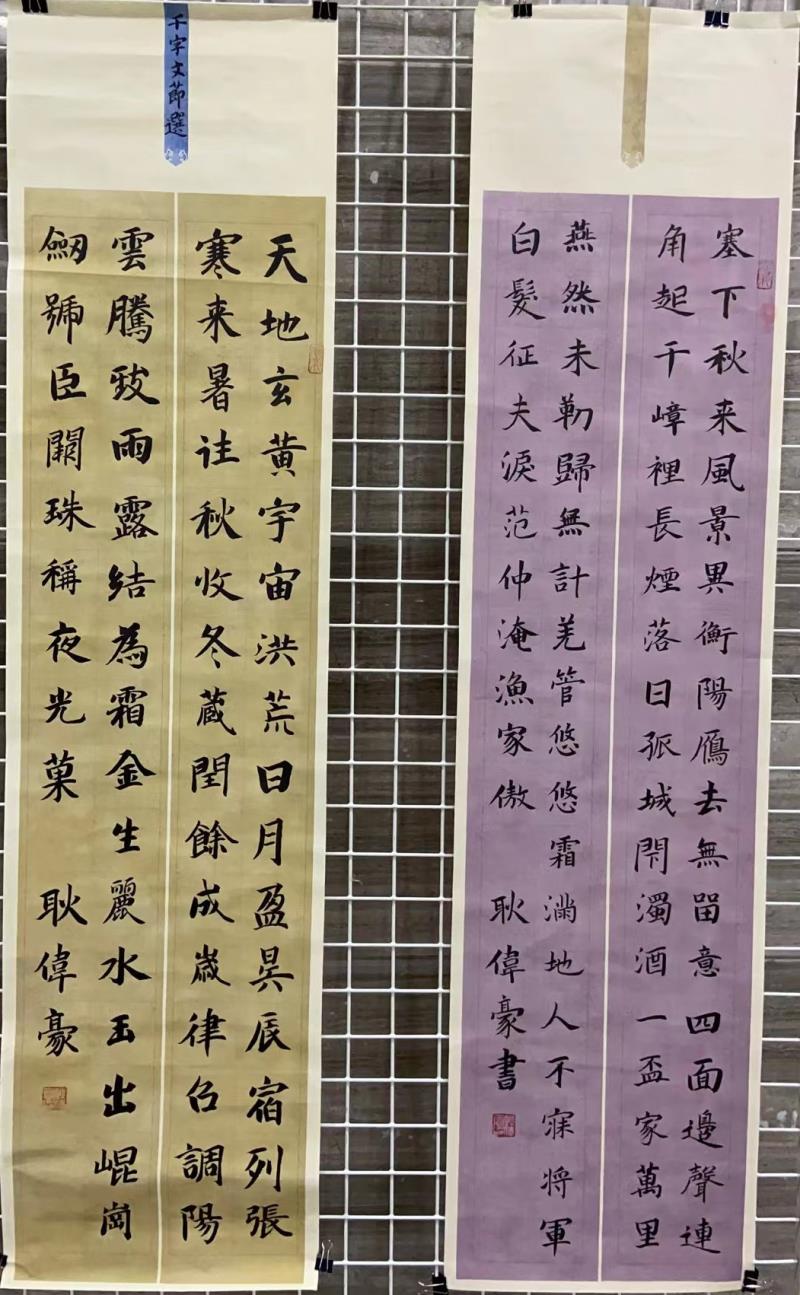 千字文節選
天地玄黃宇宙洪荒日月盈昃辰宿列張
寒来暑往秋收冬蔵閏餘成歲律召調陽
雲騰致雨露結為霜金生麗水玉出崐崗
劒號臣闕珠稱夜光菓 耿偉豪
塞下秋来風景異衡陽鴈去無留意四面邊聲連
角起千嶂裡長煙落日孤城閇濁酒一盃家萬里
燕然未勒歸無計羌管悠悠霜滿地人不寐将軍
白髮征夫淚范仲淹漁家傲 耿偉豪書